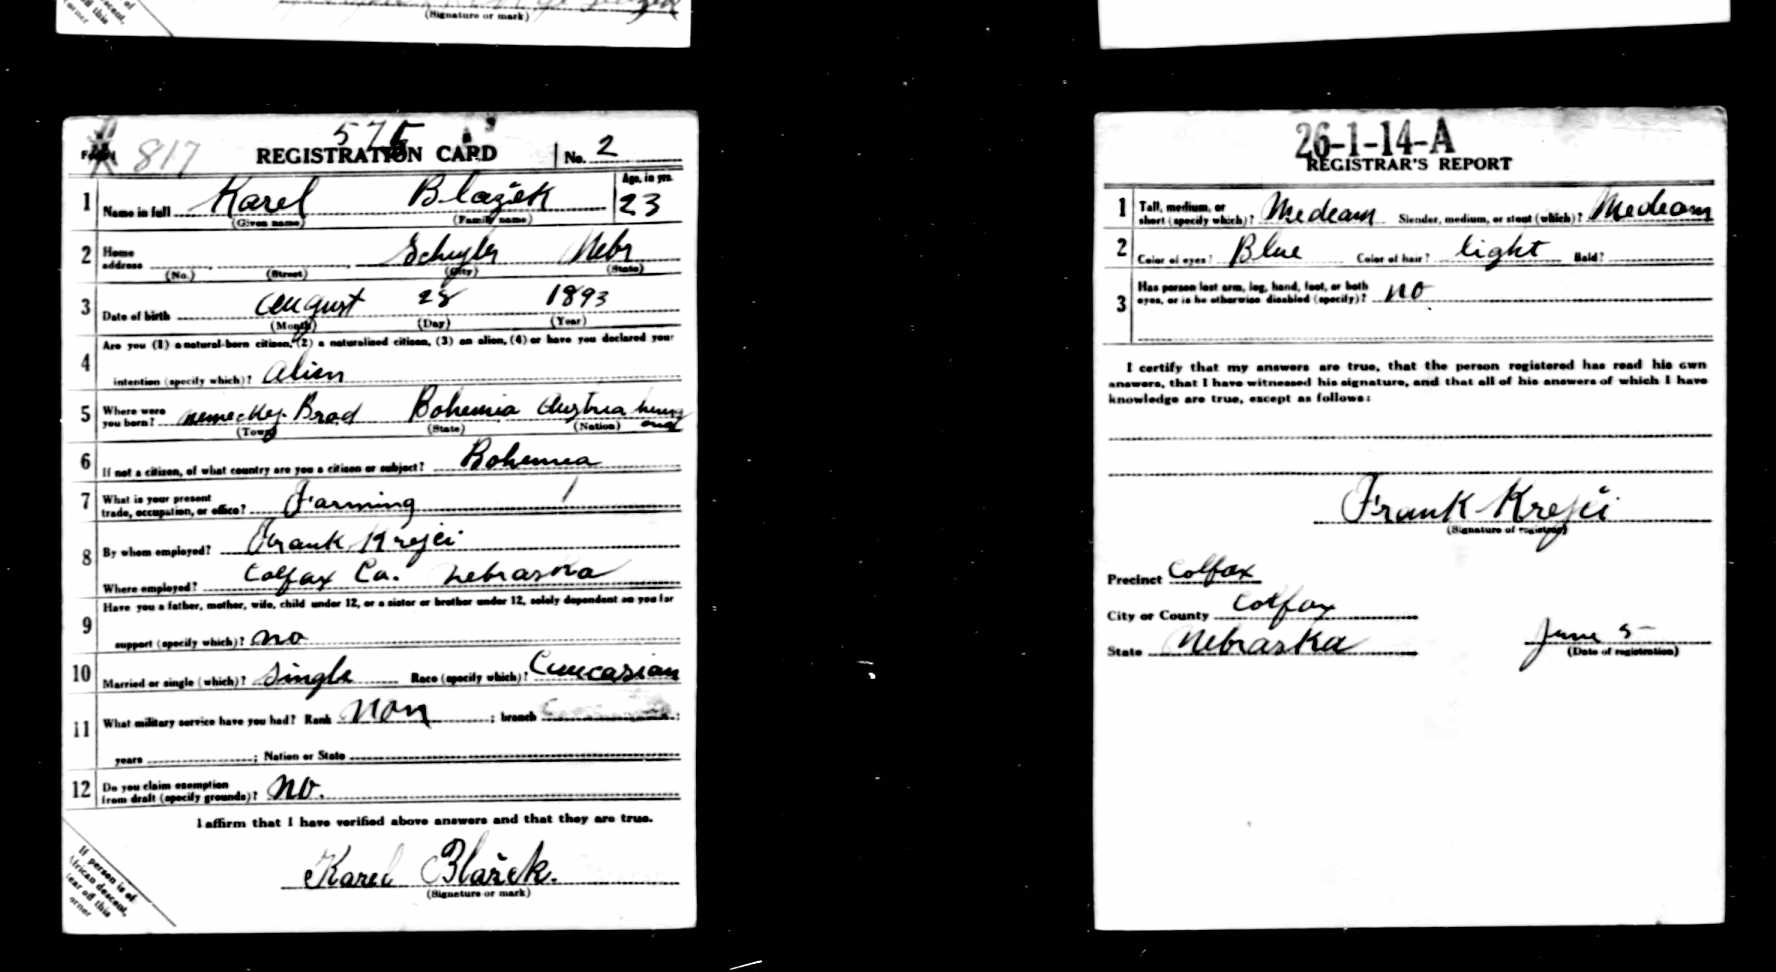 (Signature or mark)
575
817
REGISTRATION CARD No. 2
1 Name in full Karel Blažek Age, in yrs. 23
(Given name) (Family name)
2 Home address Schuyler Nebr
(No.) (Street) (City) (State)
3 Date of birth August 28 1893
(Month) (Day) (Year)
4 Are you (1) a natural-born citizen, (2) a naturalized citizen, (3) an alien, (4) or have you declared your
intention (specify which)? alien
5 Where were you born? Nemeckej Brod Bohemia Austria
(Town) (State) (Nation)
6 If not a citizen, of what country are you a citizen or subject? Bohemia
7 What is your present trade, occupation, or office? Farming
8 By whom employed? Frank Krejci
Where employed? Colfax Co. Nebraska
9 Have you a father, mother, wife, child under 12, or a sister or brother under 12, solely dependent on you for
support (specify which)? no
10 Married or single (which)? single Race (specify which)? Cuucasian
11 What military service have you had? Rank Non ; branch ;
years ; Nation or State
12 Do you claim exemption from draft (specify grounds)? no.
I affirm that I have verified above answers and that they are true.
Karel Blažek.
(Signature or mark)
If person is of
African descent,
tear off this
corner
26-1-14-A
REGISTRAR'S REPORT
1 Tall, medium, or short (specify which)? Medeam Slender, medium, or stout (which)? Medeam
2 Color of eyes? Blue Color of hair? light Bald?
3 Has person lost arm, leg, hand, foot, or both eyes, or is he otherwise disabled (specify)? no
I certify that my answers are true, that the person registered has read his own
answers, that I have witnessed his signature, and that all of his answers of which I have
knowledge are true, except as follows:
Frank Krejci
(Signature of registrar)
Precinct Colfax
City or County Colfax
State Nebraska June 5
(Date of registration)